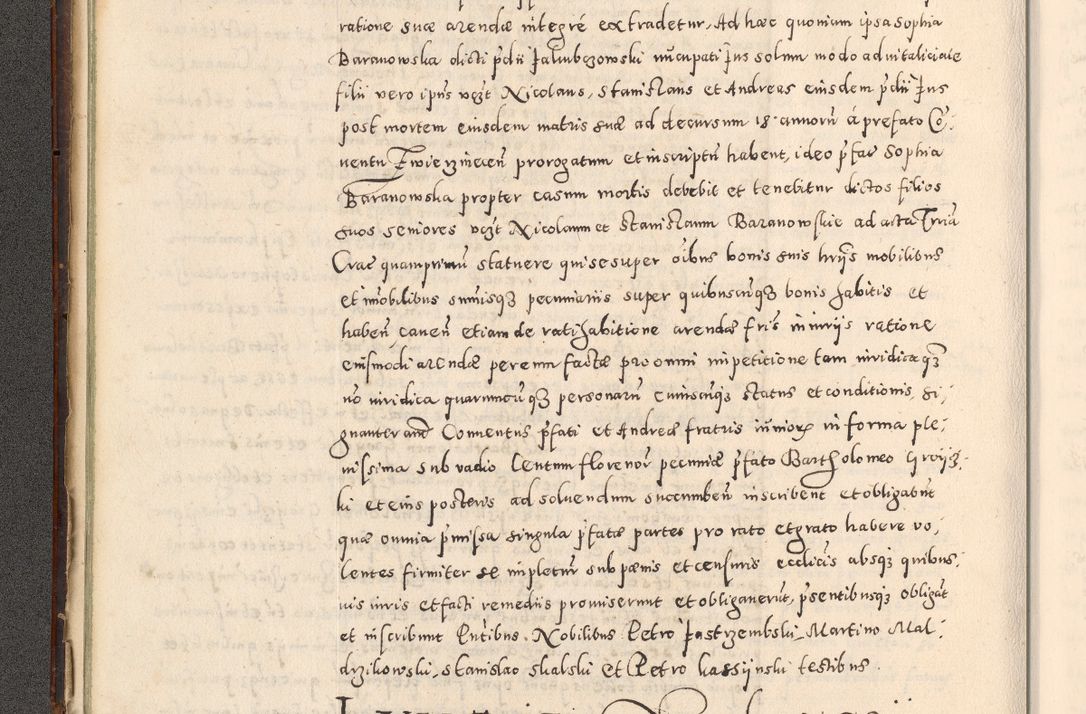 ratione suæ arendæ integrè extradetur, Ad hæc quoniam ipsa Sophia
Baranowska dicti p̃dii Jakubczowski nũcupati Jus solum modo advitaliciale
filii vero ipius vczt Nicolaus, Stanislaus et Andreas eiusdem p̃dii Jus
post mortem eiusdem matris suæ ad decursum 18 annorũ à prefato Cõ:
uentu Zwierzinecen̄ prorogatum et inscriptũ habent, ideo p̃fat Sophia
Baranowska propter casum mortis debebit et tenebitur dictos filios
suos seniores vczt Nicolaum et Stanislaum Baranowskie ad acta Trria
Crac̄ quamprimũ statuere qui se super oĩbus bonis suis hr̄ijs mobilibus
et imõbilibus sum̃isq3 pecuniariis super quibuscũq3 bonis habitis et
haben̄ caven̄ etiam de ratihabitione arendæ fr̄is minnijs ratione
eiusmodi arendæ per eum factæ pro omni impetitione tam iuridica q3
nõ iuridica quarumcũq3 personarũ cuiuscũq3 status et conditionis, si:
gnanter aut̄ Conuentus p̃fati et Andreæ fratris iũniorꝝ in forma ple:
nissima sub vadio Centum florenorũ pecuniæ p̃fato Bartholomeo Groijz:
ki et eius posteris ad soluendum succumben̄ inscribent et obligabũt
quæ omnia p̃missa singula p̃fatæ partes pro rato et grato habere vo:
lentes firmiter se impletur̄ sub pænis et censuris eccl̄icis absq3 quibus:
uis iuris et facti remediis promiserunt et obligauerũt, p̃sentibusq3 obligãt
et inscribunt P̃ntibus. Nobilibus Petro Jastrzembski, Martino Mal:
drzikowski, Stanislao Skalski et Petro kassijnski testibus.